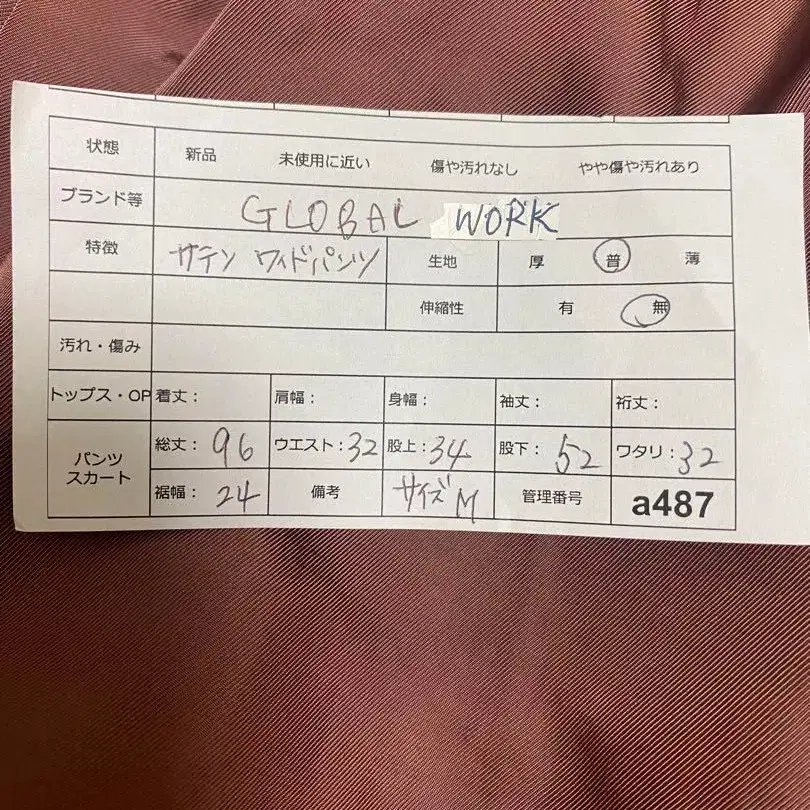 状態 新品 未使用に近い 傷や汚れなし やや傷や汚れあり
ブランド等 GLOBAL WORK
特徴 サテン ワイドパンツ 生地 厚 普 薄
伸縮性 有 無
汚れ・傷み
トップス・OP 着丈： 肩幅： 身幅： 袖丈： 裄丈：
パンツ スカート 総丈：96 ウエスト：32 股上：34 股下：52 ワタリ：32
裾幅：24 備考 サイズM 管理番号 a487